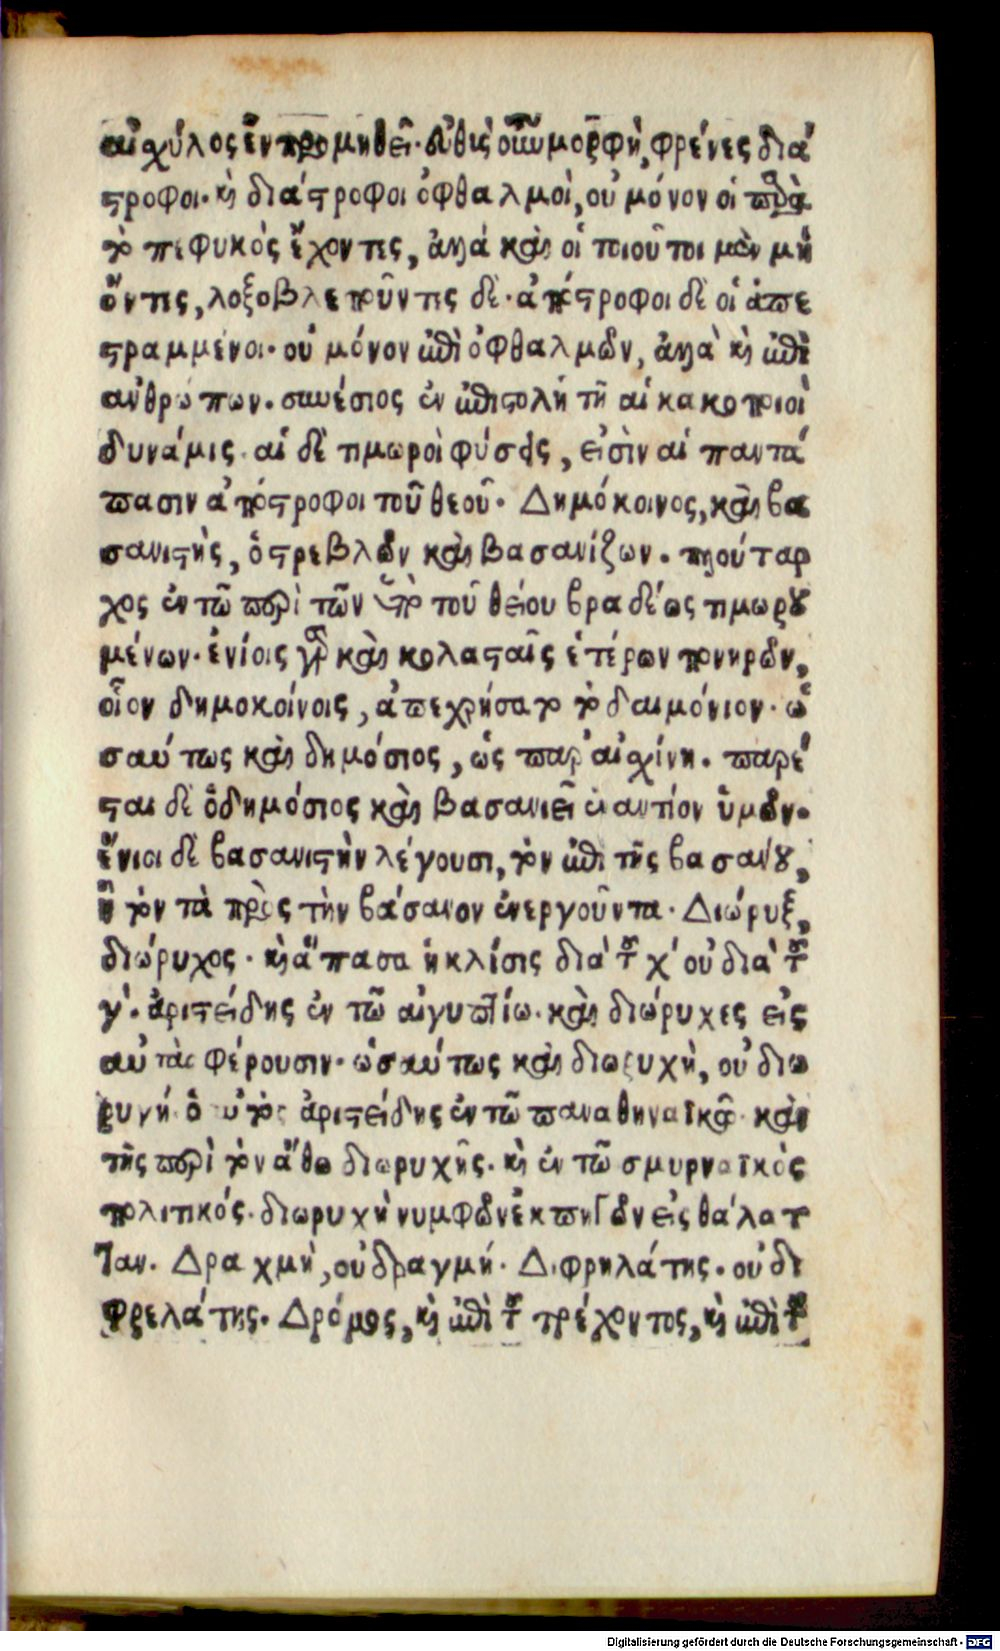 αἰσχύλος ἐν προμηθεῖ· εὐθὺς οὖν μορφὴ, φρένες διά
στροφοι· καὶ διάστροφοι ὀφθαλμοὶ, οὐ μόνον οἱ παρὰ
τὸ πεφυκὸς ἔχοντες, ἀλλὰ καὶ οἱ τοιοῦτοι μὲν μὴ
ὄντες, λοξοβλεποῦντες δέ· ἀπόστροφοι δὲ οἱ ἀπε
στραμμένοι· οὐ μόνον ἐπὶ ὀφθαλμῶν, ἀλλὰ καὶ ἐπὶ
ἀνθρώπων. συνέσιος ἐν ἐπιστολῇ τῇ αἱ κακοποιοὶ
δυνάμεις· αἱ δὲ τιμωροὶ φύσεις, εἰσὶν αἱ παντά
πασιν ἀπόστροφοι τοῦ θεοῦ· Δημόκοινος, καὶ βα
σανιστὴς, ὁ στρεβλῶν καὶ βασανίζων. πλούταρ
χος ἐν τῶ περὶ τῶν ὑπὸ τοῦ θείου βραδέως τιμωρου
μένων· ἐνίοις γὰρ καὶ κολασταῖς ἑτέρων πονηρῶν,
οἷον δημοκοίνοις, ἀπεχρήσατο τὸ δαιμόνιον· ὡ
σαύτως καὶ δημόσιος, ὡς παρ' αἰσχίνη. παρέ
σται δὲ ὁ δημόσιος καὶ βασανιεῖ ἐναντίον ὑμῶν·
ἔνιοι δὲ βασανιστὴν λέγουσι, τὸν ἐπὶ τῆς βασάνου,
ἢ τὸν τὰ πρὸς τὴν βάσανον ἐνεργοῦντα· Διώρυξ,
διώρυχος· καὶ ἅπασα ἡ κλίσις διὰ τοῦ χ' οὐ διὰ τοῦ
γ'. ἀριστείδης ἐν τῶ αἰγυπτίω· καὶ διώρυχες εἰς
αὐτὰς φέρουσιν· ὡσαύτως καὶ διωρυχὴ, οὐ διω
ρυγή· ὁ αὐτὸς ἀριστείδης ἐν τῶ παναθηναϊκῶ· καὶ
τῆς περὶ τὸν ἄθω διωρυχῆς· καὶ ἐν τῶ σμυρναϊκὸς
πολιτικός· διωρυχὴ νυμφῶν ἐκ πηγῶν εἰς θάλατ
ταν. Δραχμὴ, οὐ δραγμή· Διφρηλάτης· οὐ δι
φρελάτης. Δρόμος, καὶ ἐπὶ τοῦ τρέχοντος, καὶ ἐπὶ τοῦ
Digitalisierung gefördert durch die Deutsche Forschungsgemeinschaft - DFG